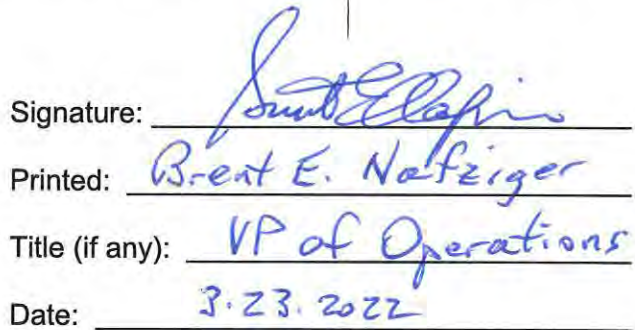 Signature:
Printed: Brent E. Nafziger
Title (if any): VP of Operations
Date: 3.23.2022